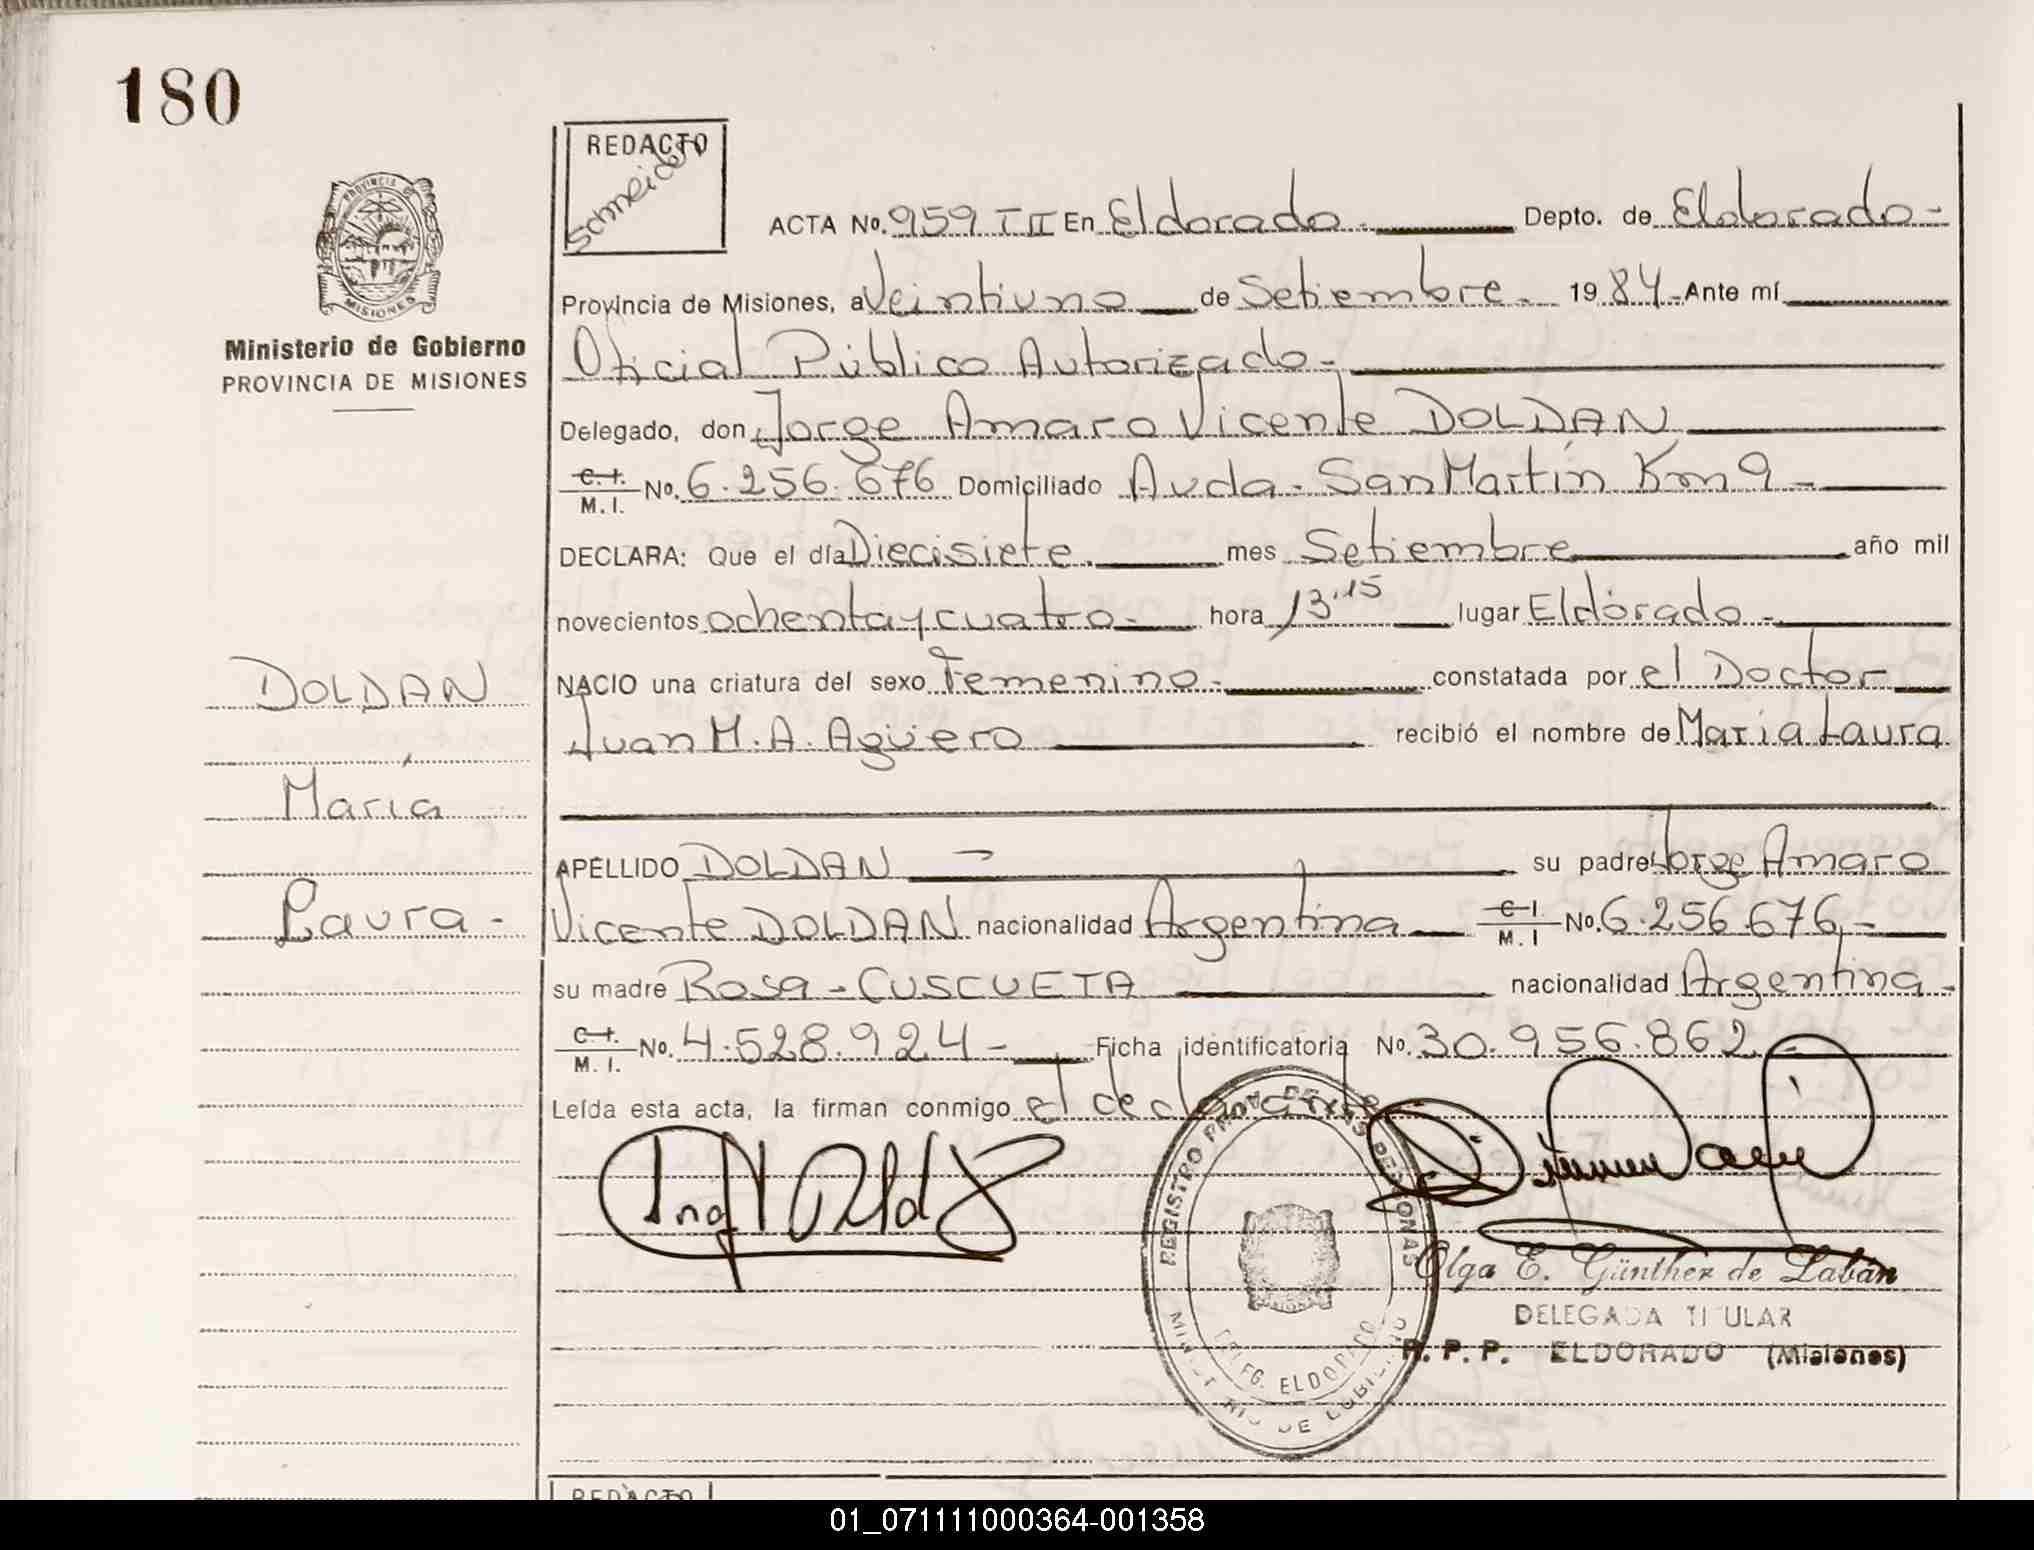 180
REDACTO
Schneider
ACTA No. 959 T II En Eldorado.- Depto. de Eldorado-
Provincia de Misiones, a Veintiuno de Setiembre.- 1984.- Ante mí
Ministerio de Gobierno
PROVINCIA DE MISIONES
Oficial Público Autorizado.-
Delegado, don Jorge Amaro Vicente DOLDAN
C.I. M.I. No. 6.256.676 Domiciliado Avda. San Martín Km 9-
DECLARA: Que el día Diecisiete mes Setiembre año mil
novecientos ochenta y cuatro- hora 13'15 lugar Eldorado-
NACIO una criatura del sexo Femenino.- constatada por el Doctor
Juan M. A. Agüero recibió el nombre de María Laura
DOLDAN
María
Laura-
APELLIDO DOLDAN su padre Jorge Amaro
Vicente DOLDAN nacionalidad Argentina C.I. M.I No. 6.256.676.-
su madre Rosa - CUSCUETA nacionalidad Argentina-
C.I. M.I. No. 4.528.924- Ficha identificatoria No. 30.956.862-
Leída esta acta, la firman conmigo el declarante
REGISTRO PROV. DE LAS PERSONAS
DELEG. ELDORADO
MINISTERIO DE GOBIERNO
Olga E. Günther de Labán
DELEGADA TITULAR
R. P. P. ELDORADO (Misiones)
REDACTO
01_071111000364-001358